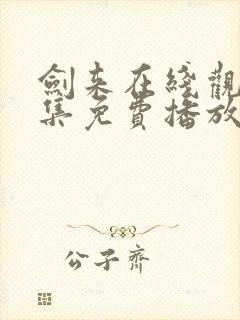 劍來在綫觀
集免費播放
公子齊